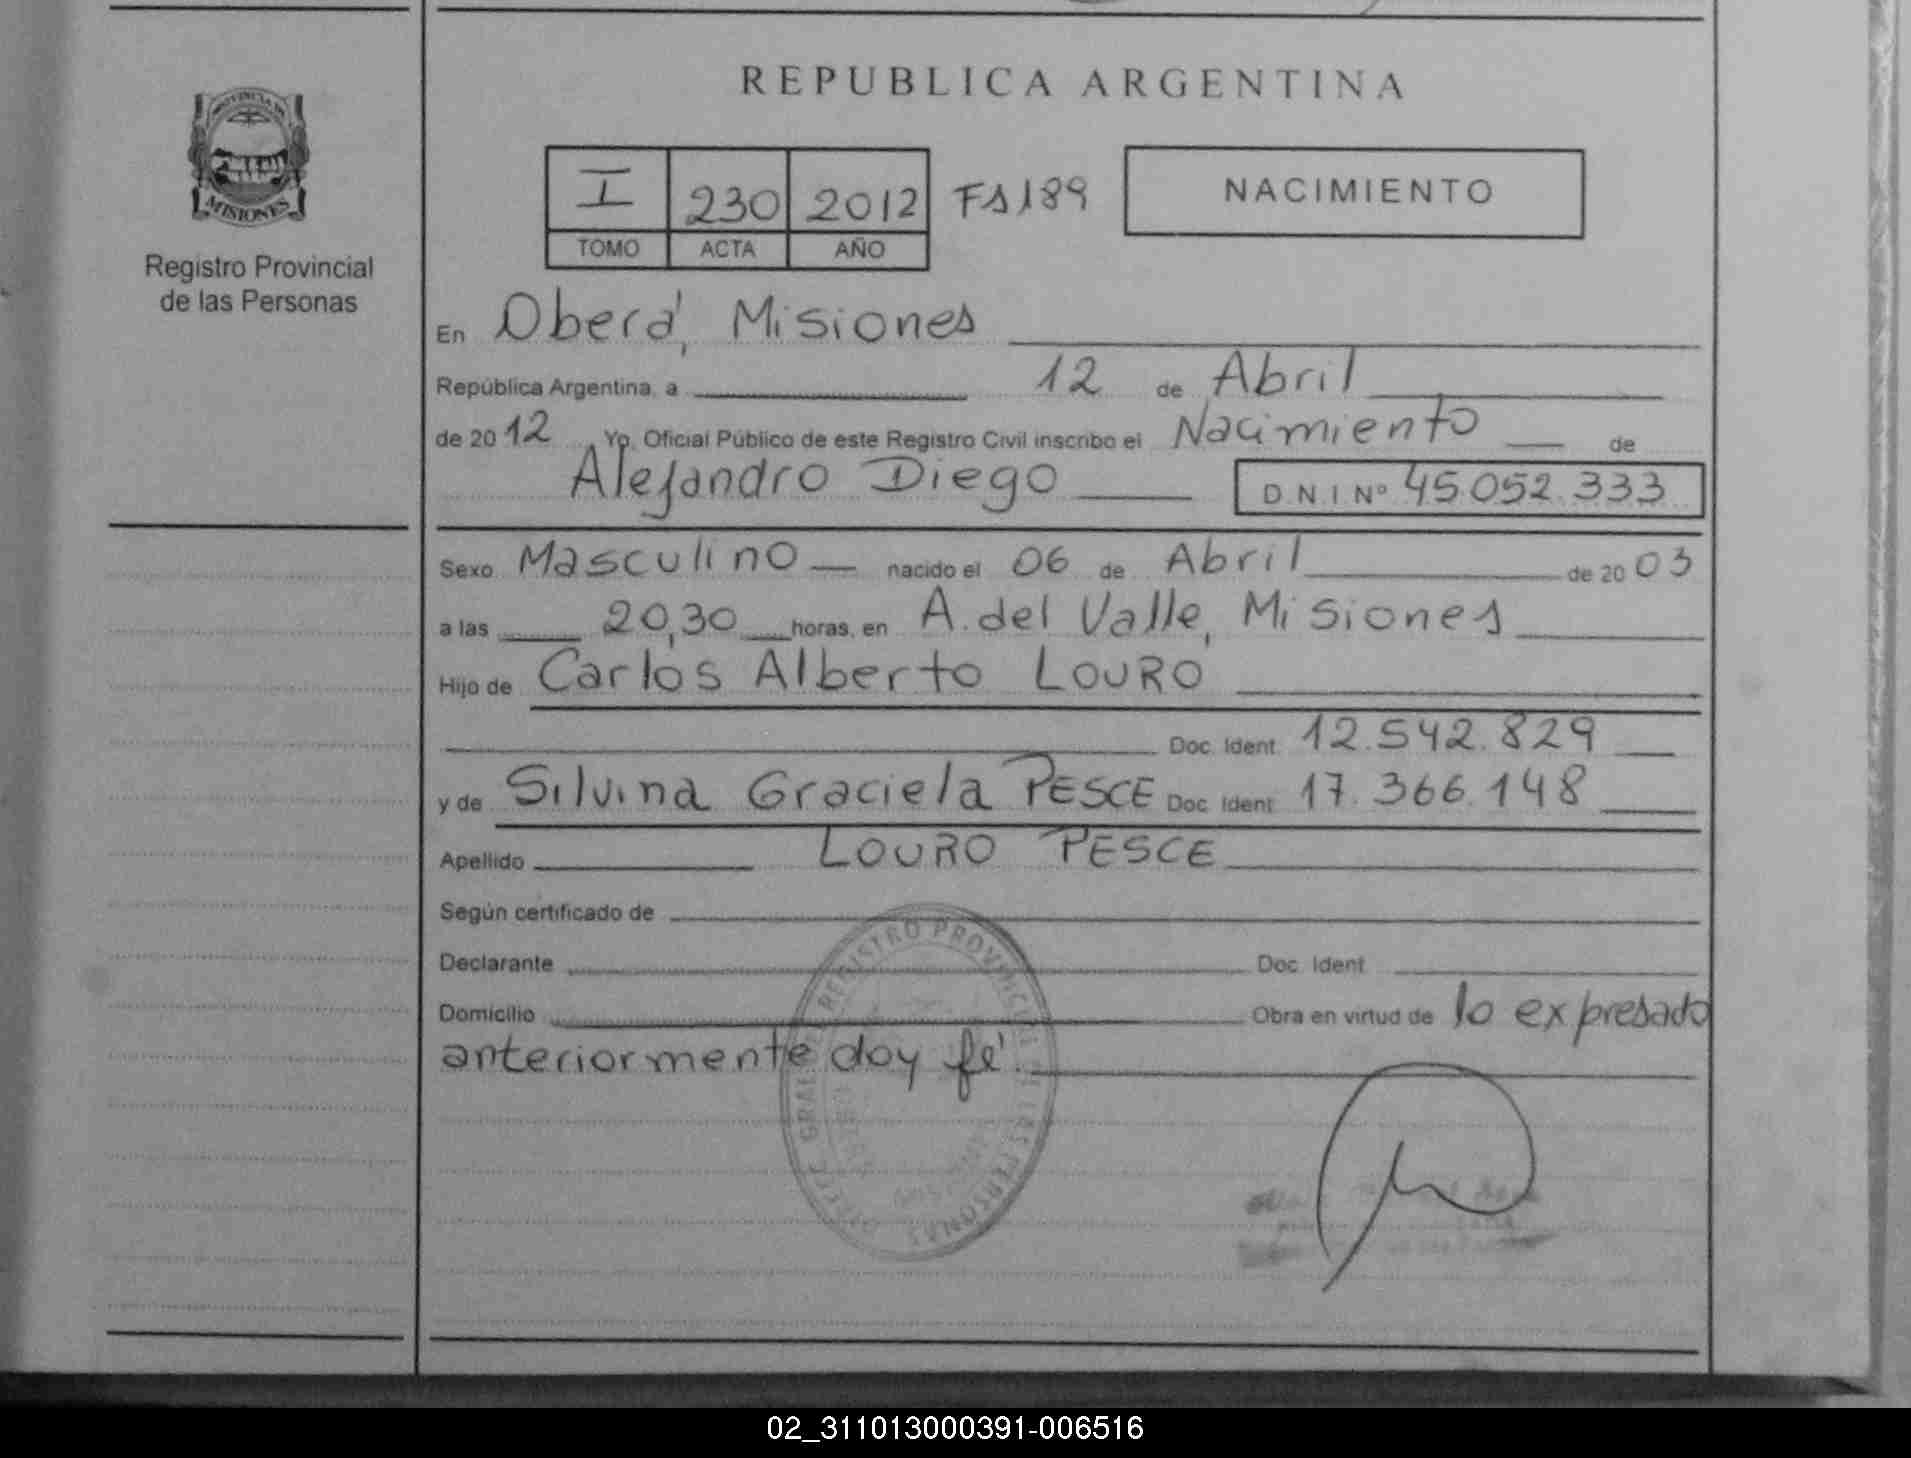 PROVINCIA DE
MISIONES
Registro Provincial
de las Personas
REPUBLICA ARGENTINA
I 230 2012 Fs 189
TOMO ACTA AÑO
NACIMIENTO
En Oberá, Misiones
República Argentina, a 12 de Abril
de 2012 Yo, Oficial Público de este Registro Civil inscribo el Nacimiento de
Alejandro Diego D.N.I Nº 45.052.333
Sexo Masculino nacido el 06 de Abril de 2003
a las 20,30 horas, en A. del Valle, Misiones
Hijo de Carlos Alberto LOURO
Doc. Ident. 12.542.829
y de Silvina Graciela PESCE Doc. Ident. 17.366.148
Apellido LOURO PESCE
Según certificado de
Declarante Doc. Ident.
Domicilio Obra en virtud de lo expresado
anteriormente doy fé.
REGISTRO PROVINCIAL DE LAS PERSONAS
02_311013000391-006516